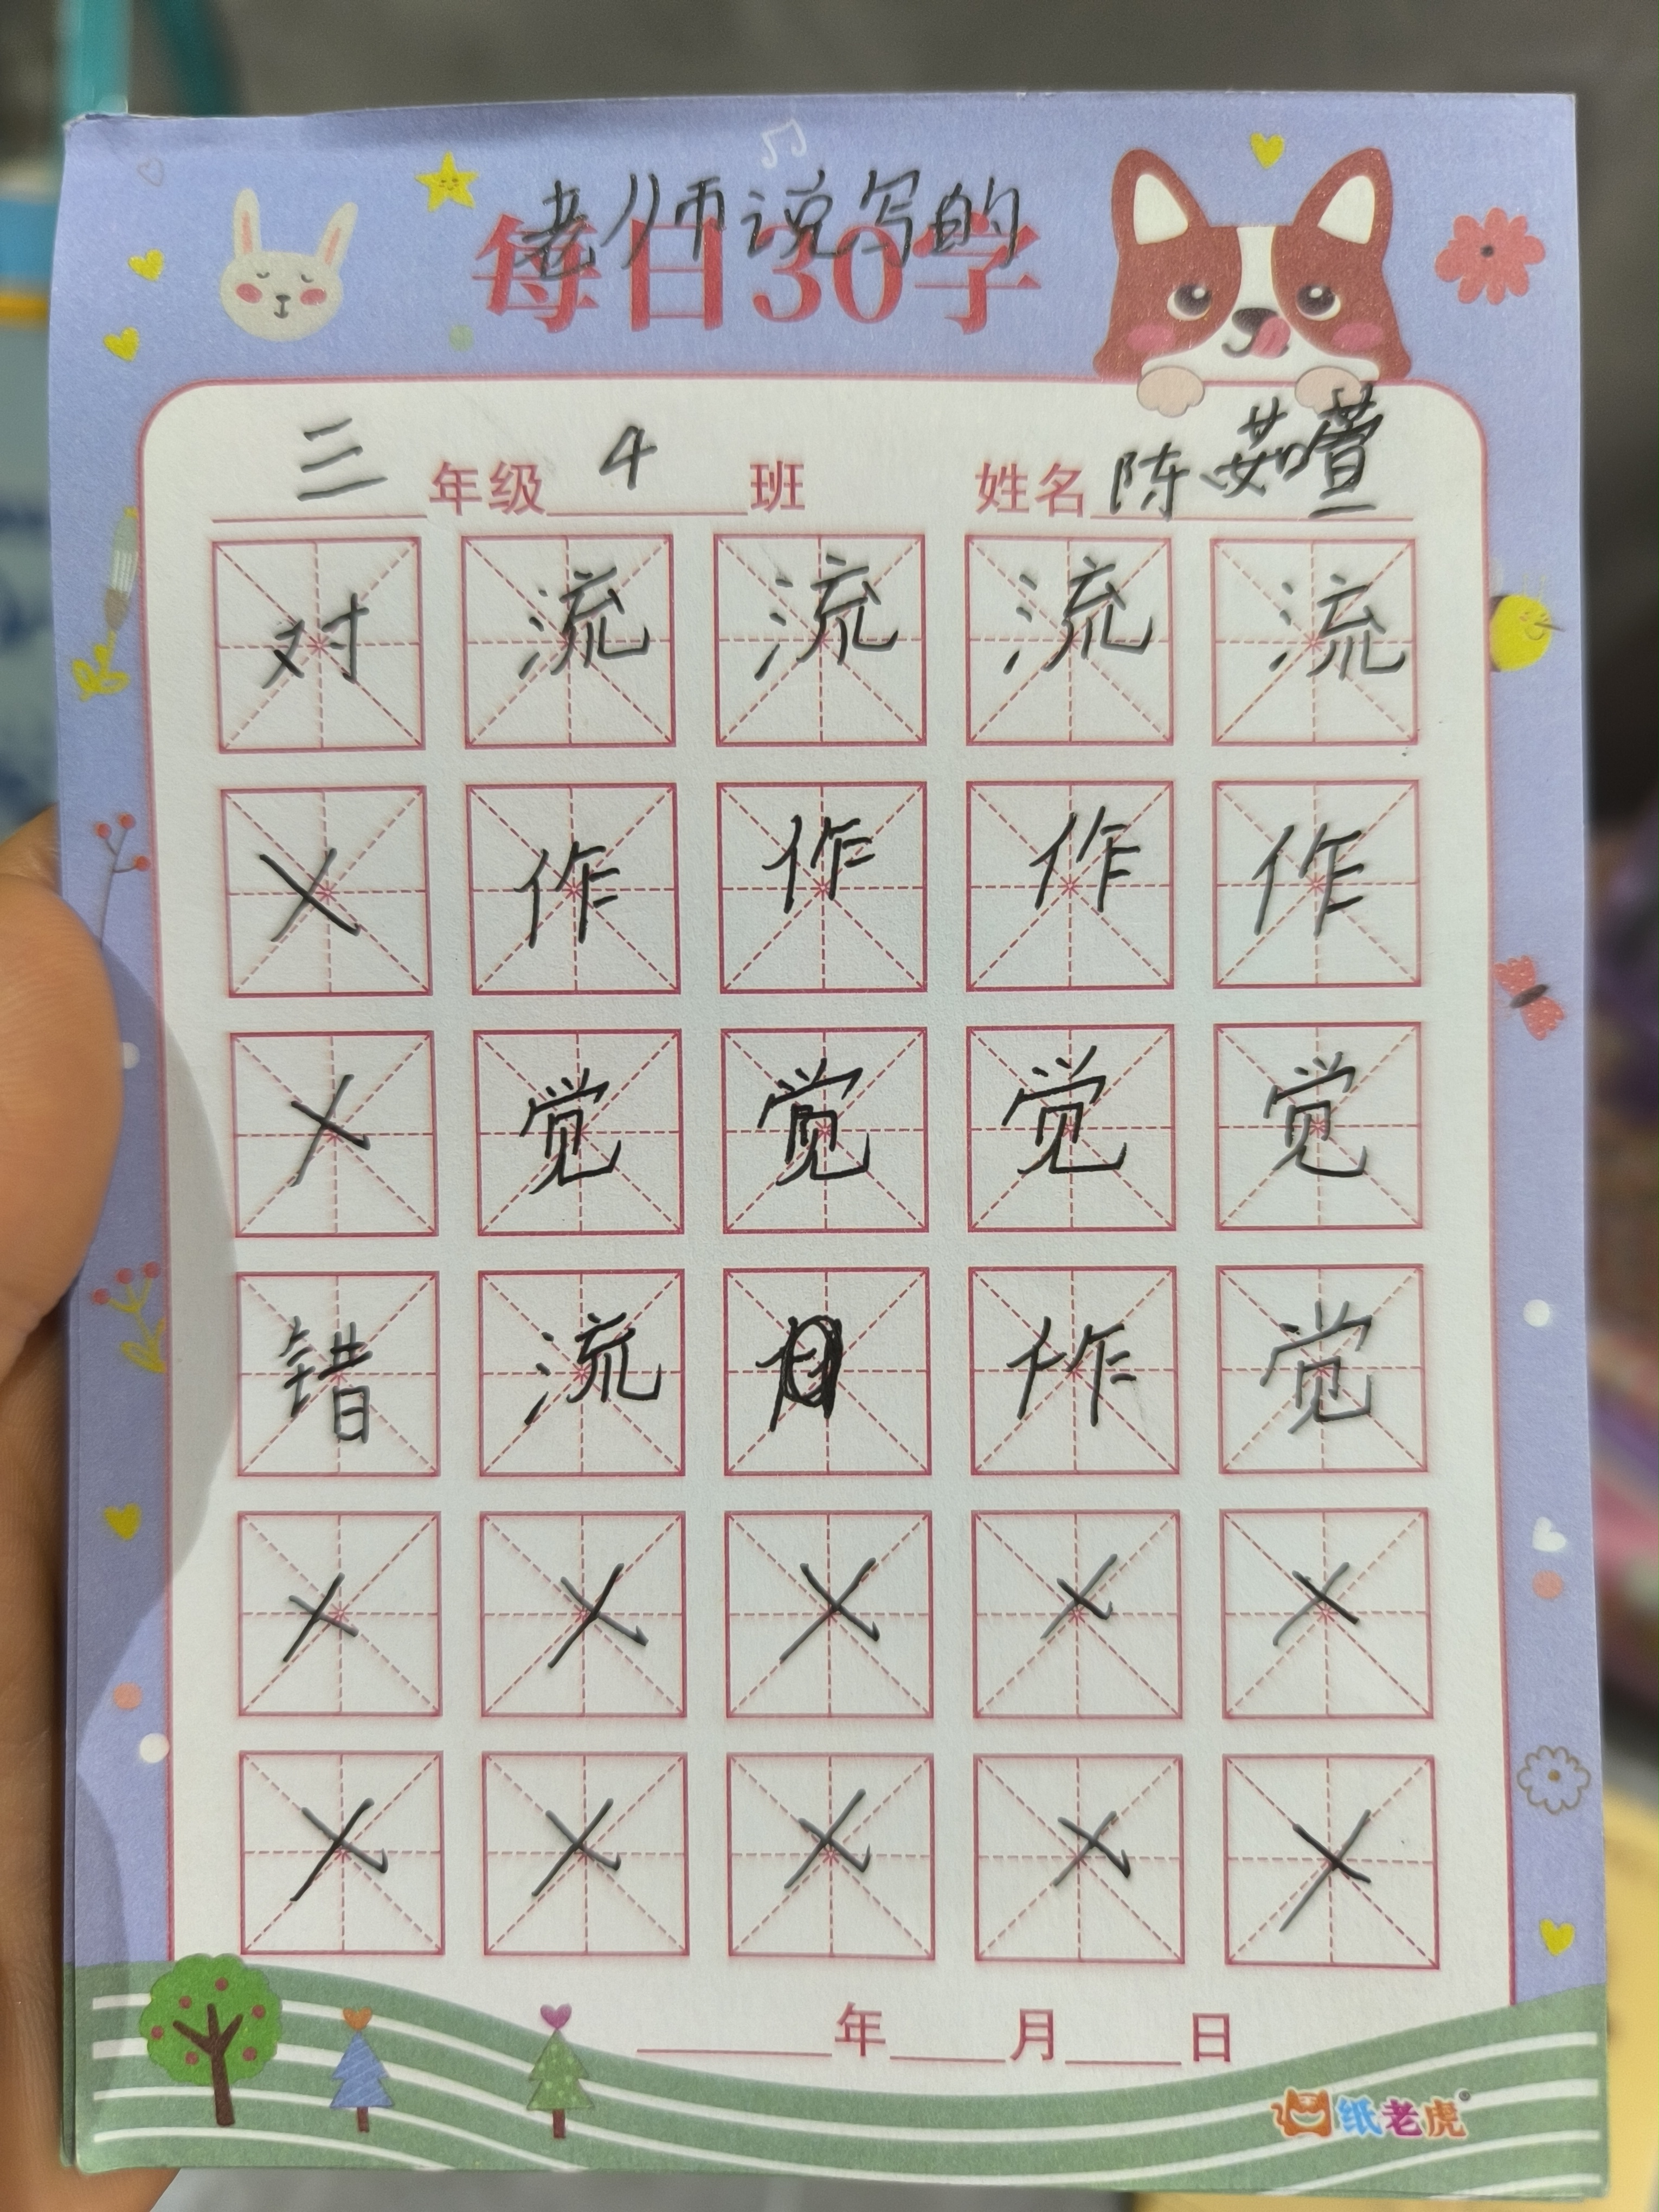 老师说写的
每日30字
三年级 4 班 姓名 陈茹萱
对 流 流 流 流
× 作 作 作 作
× 觉 觉 觉 觉
错 流 作 觉
× × × × ×
× × × × ×
年 月 日
纸老虎®